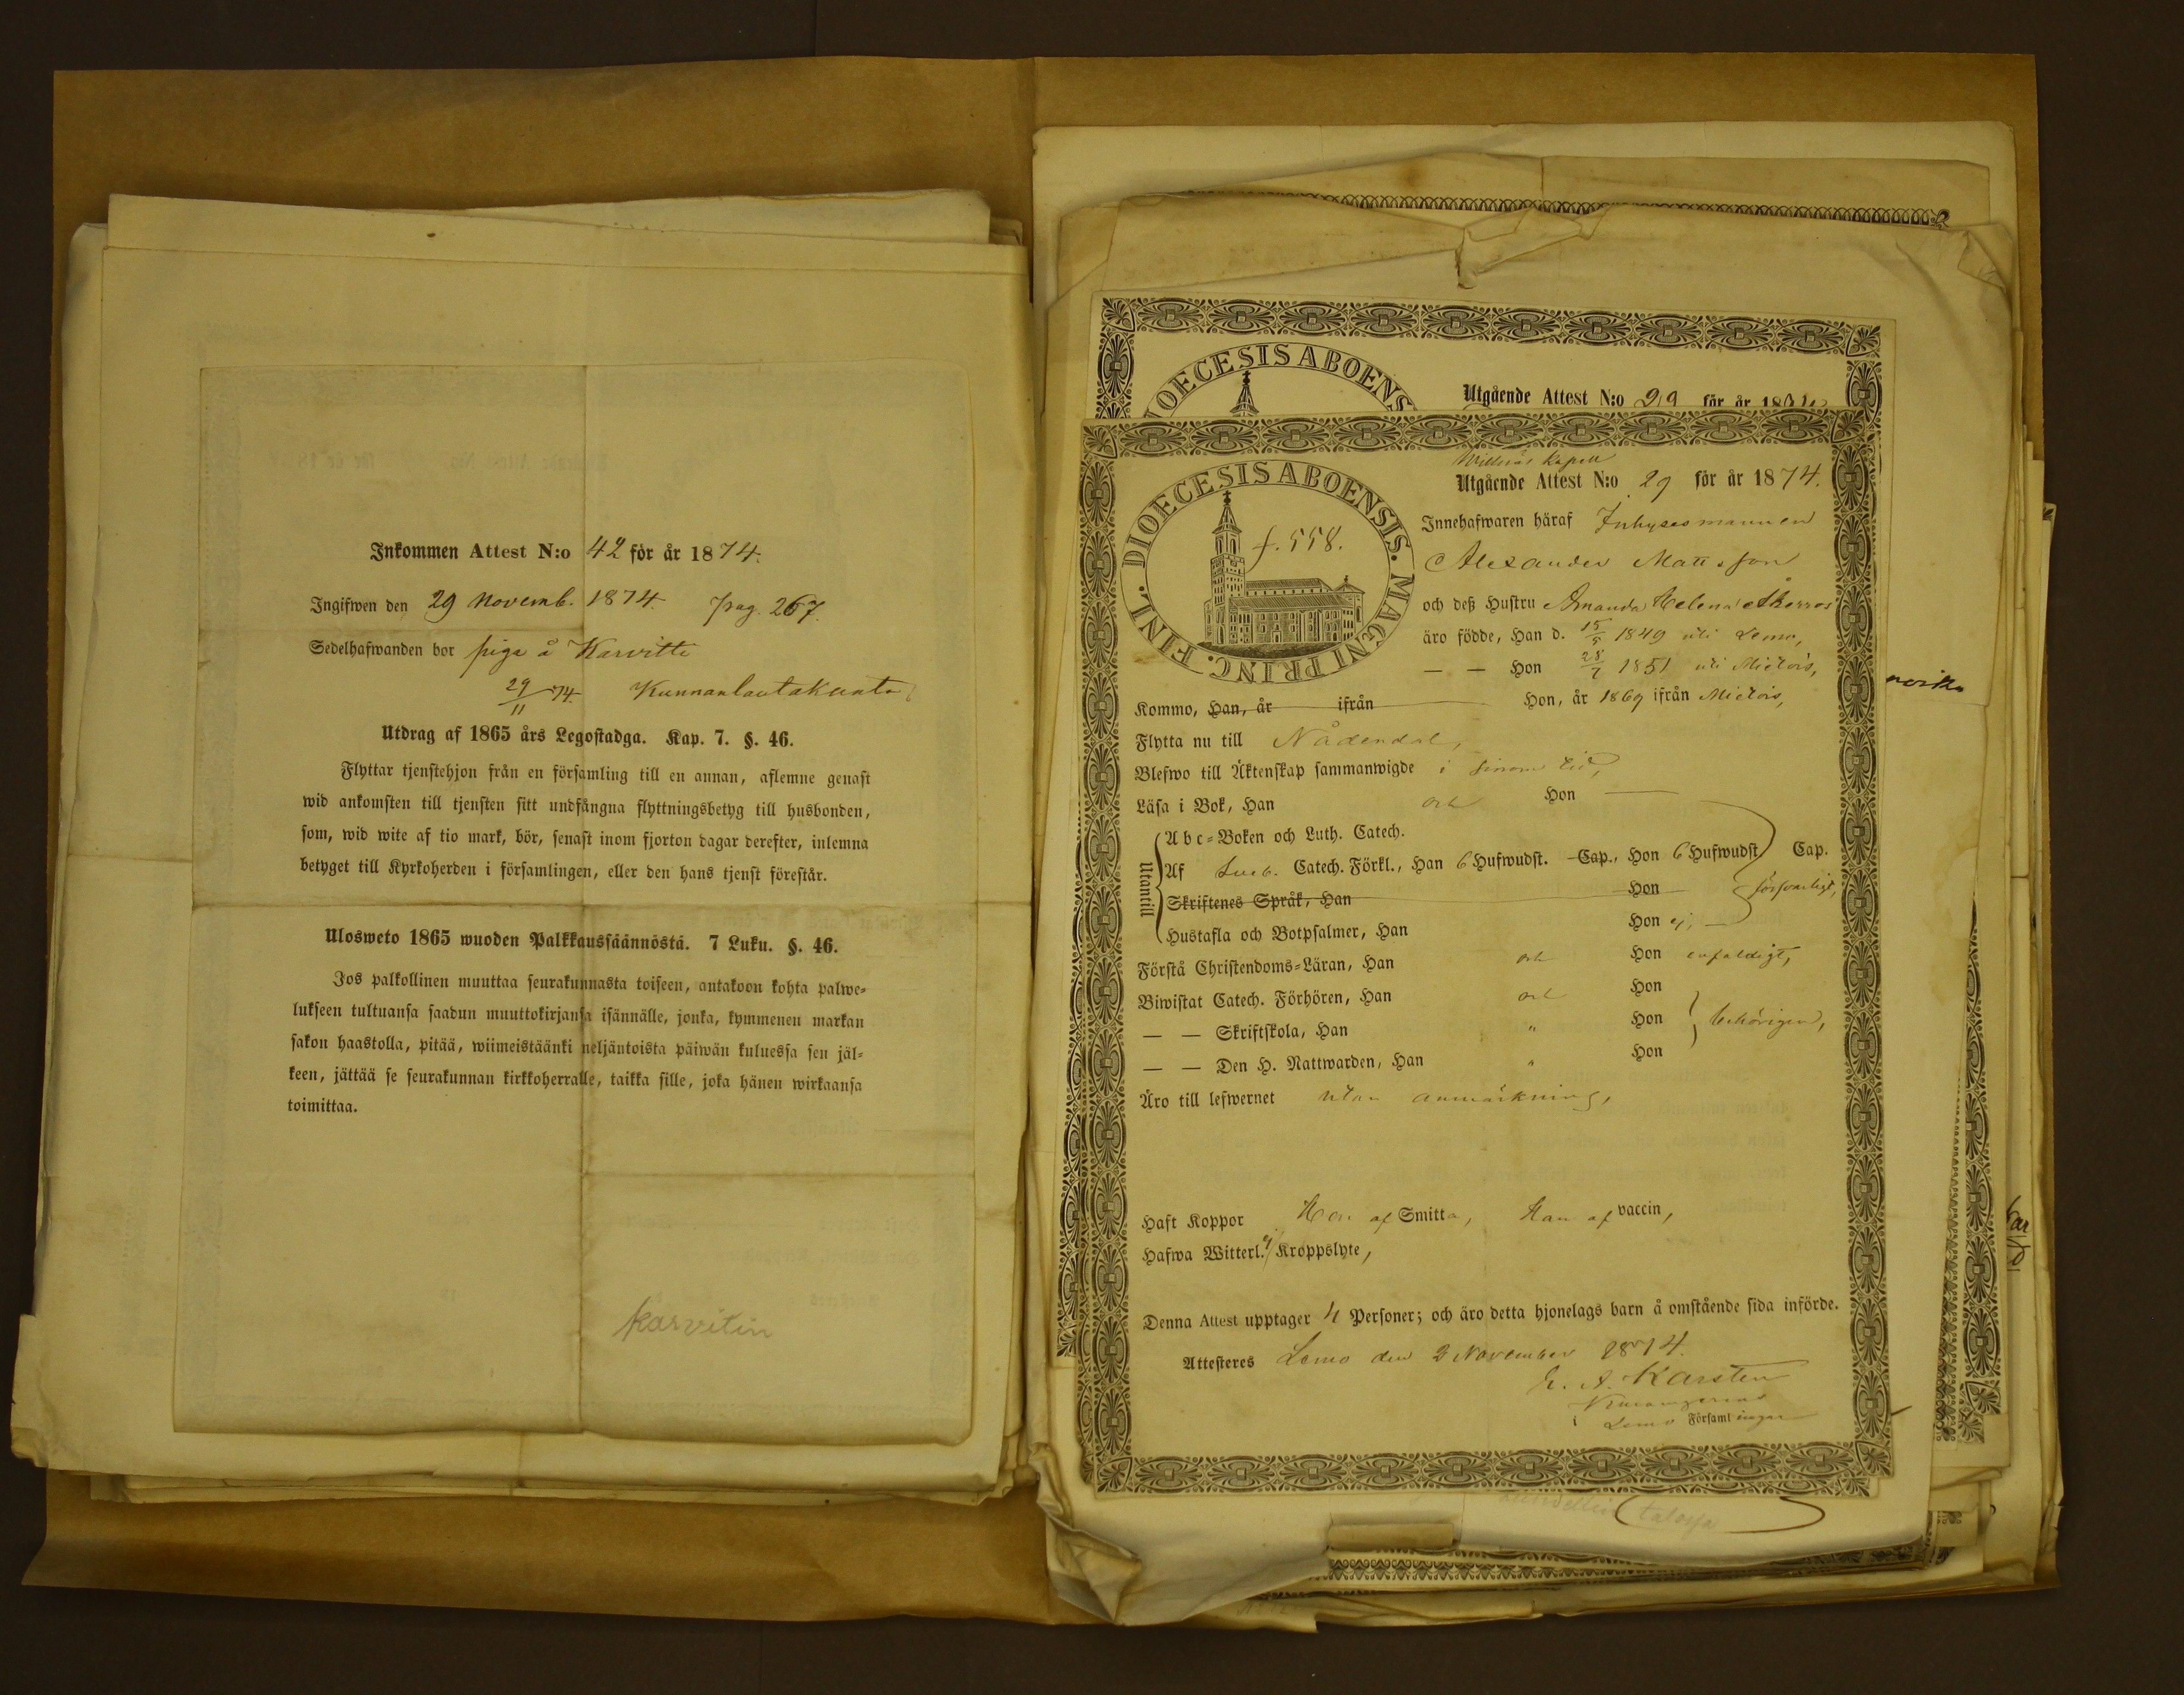 Inkommen Attest N:o 42 för år 1874.
Ingifwen den 29 Novemb. 1874. pag. 267.
Sedelhafwanden bor piga å Karvitti
29/11 74. Kunnanlautakunta
Utdrag af 1865 års Legostadga. Kap. 7. §. 46.
Flyttar tjenstehjon från en församling till en annan, aflemne genast
wid ankomsten till tjensten sitt undfångna flyttningsbetyg till husbonden,
som, wid wite af tio mark, bör, senast inom fjorton dagar derefter, inlemna
betyget till Kyrkoherden i församlingen, eller den hans tjenst förestår.
Ulosweto 1865 wuoden Palkkaussäännöstä. 7 Luku. §. 46.
Jos palkollinen muuttaa seurakunnasta toiseen, antakoon kohta palwe-
lukseen tultuansa saadun muuttokirjansa isännälle, jonka, kymmenen markan
sakon haastolla, pitää, wiimeistäänki neljäntoista päiwän kuluessa sen jäl-
keen, jättää se seurakunnan kirkkoherralle, taikka sille, joka hänen wirkaansa
toimittaa.
Karvitin
DIOECESIS ABOENS
Utgående Attest N:o 29 för år 18
DIOECESIS ABOENSIS. MAGNI PRINC. FINL.
f. 558.
Kapell
Utgående Attest N:o 29 för år 1874.
Innehafwaren häraf Inhysesmannen
Alexander Mattsson
och deß Hustru Amanda Helena
äro födde, Han d. 15/5 1849 uti Lemo,
— — Hon 28/7 1851 uti Mietois,
Kommo, Han, år ifrån Hon, år 1869 ifrån Mietois,
Flytta nu till Nådendal,
Blefwo till Äktenskap sammanwigde i sinom tid,
Läsa i Bok, Han och Hon
Utantill
Abc-Boken och Luth. Catech.
Af Sveb. Catech. Förkl., Han 6 Hufwudst. Cap., Hon 6 Hufwudst. Cap.
Skriftenes Språk, Han Hon försvarligt,
Hustafla och Botpsalmer, Han Hon ej,
Förstå Christendoms-Läran, Han och Hon enfaldigt,
Biwistat Catech. Förhören, Han och Hon
— — Skriftskola, Han " Hon behörigen,
— — Den H. Nattwarden, Han " Hon
Äro till lefwernet utan anmärkning,
Haft Koppor Hon af Smitta, Han af vaccin,
Hafwa Witterl. ej Kroppslyte,
Denna Attest upptager 4 Personer; och äro detta hjonelags barn å omstående sida införde.
Attesteres Lemo den 2 November 1874.
K. A. Karsten
i Lemo Församlingar
talossa